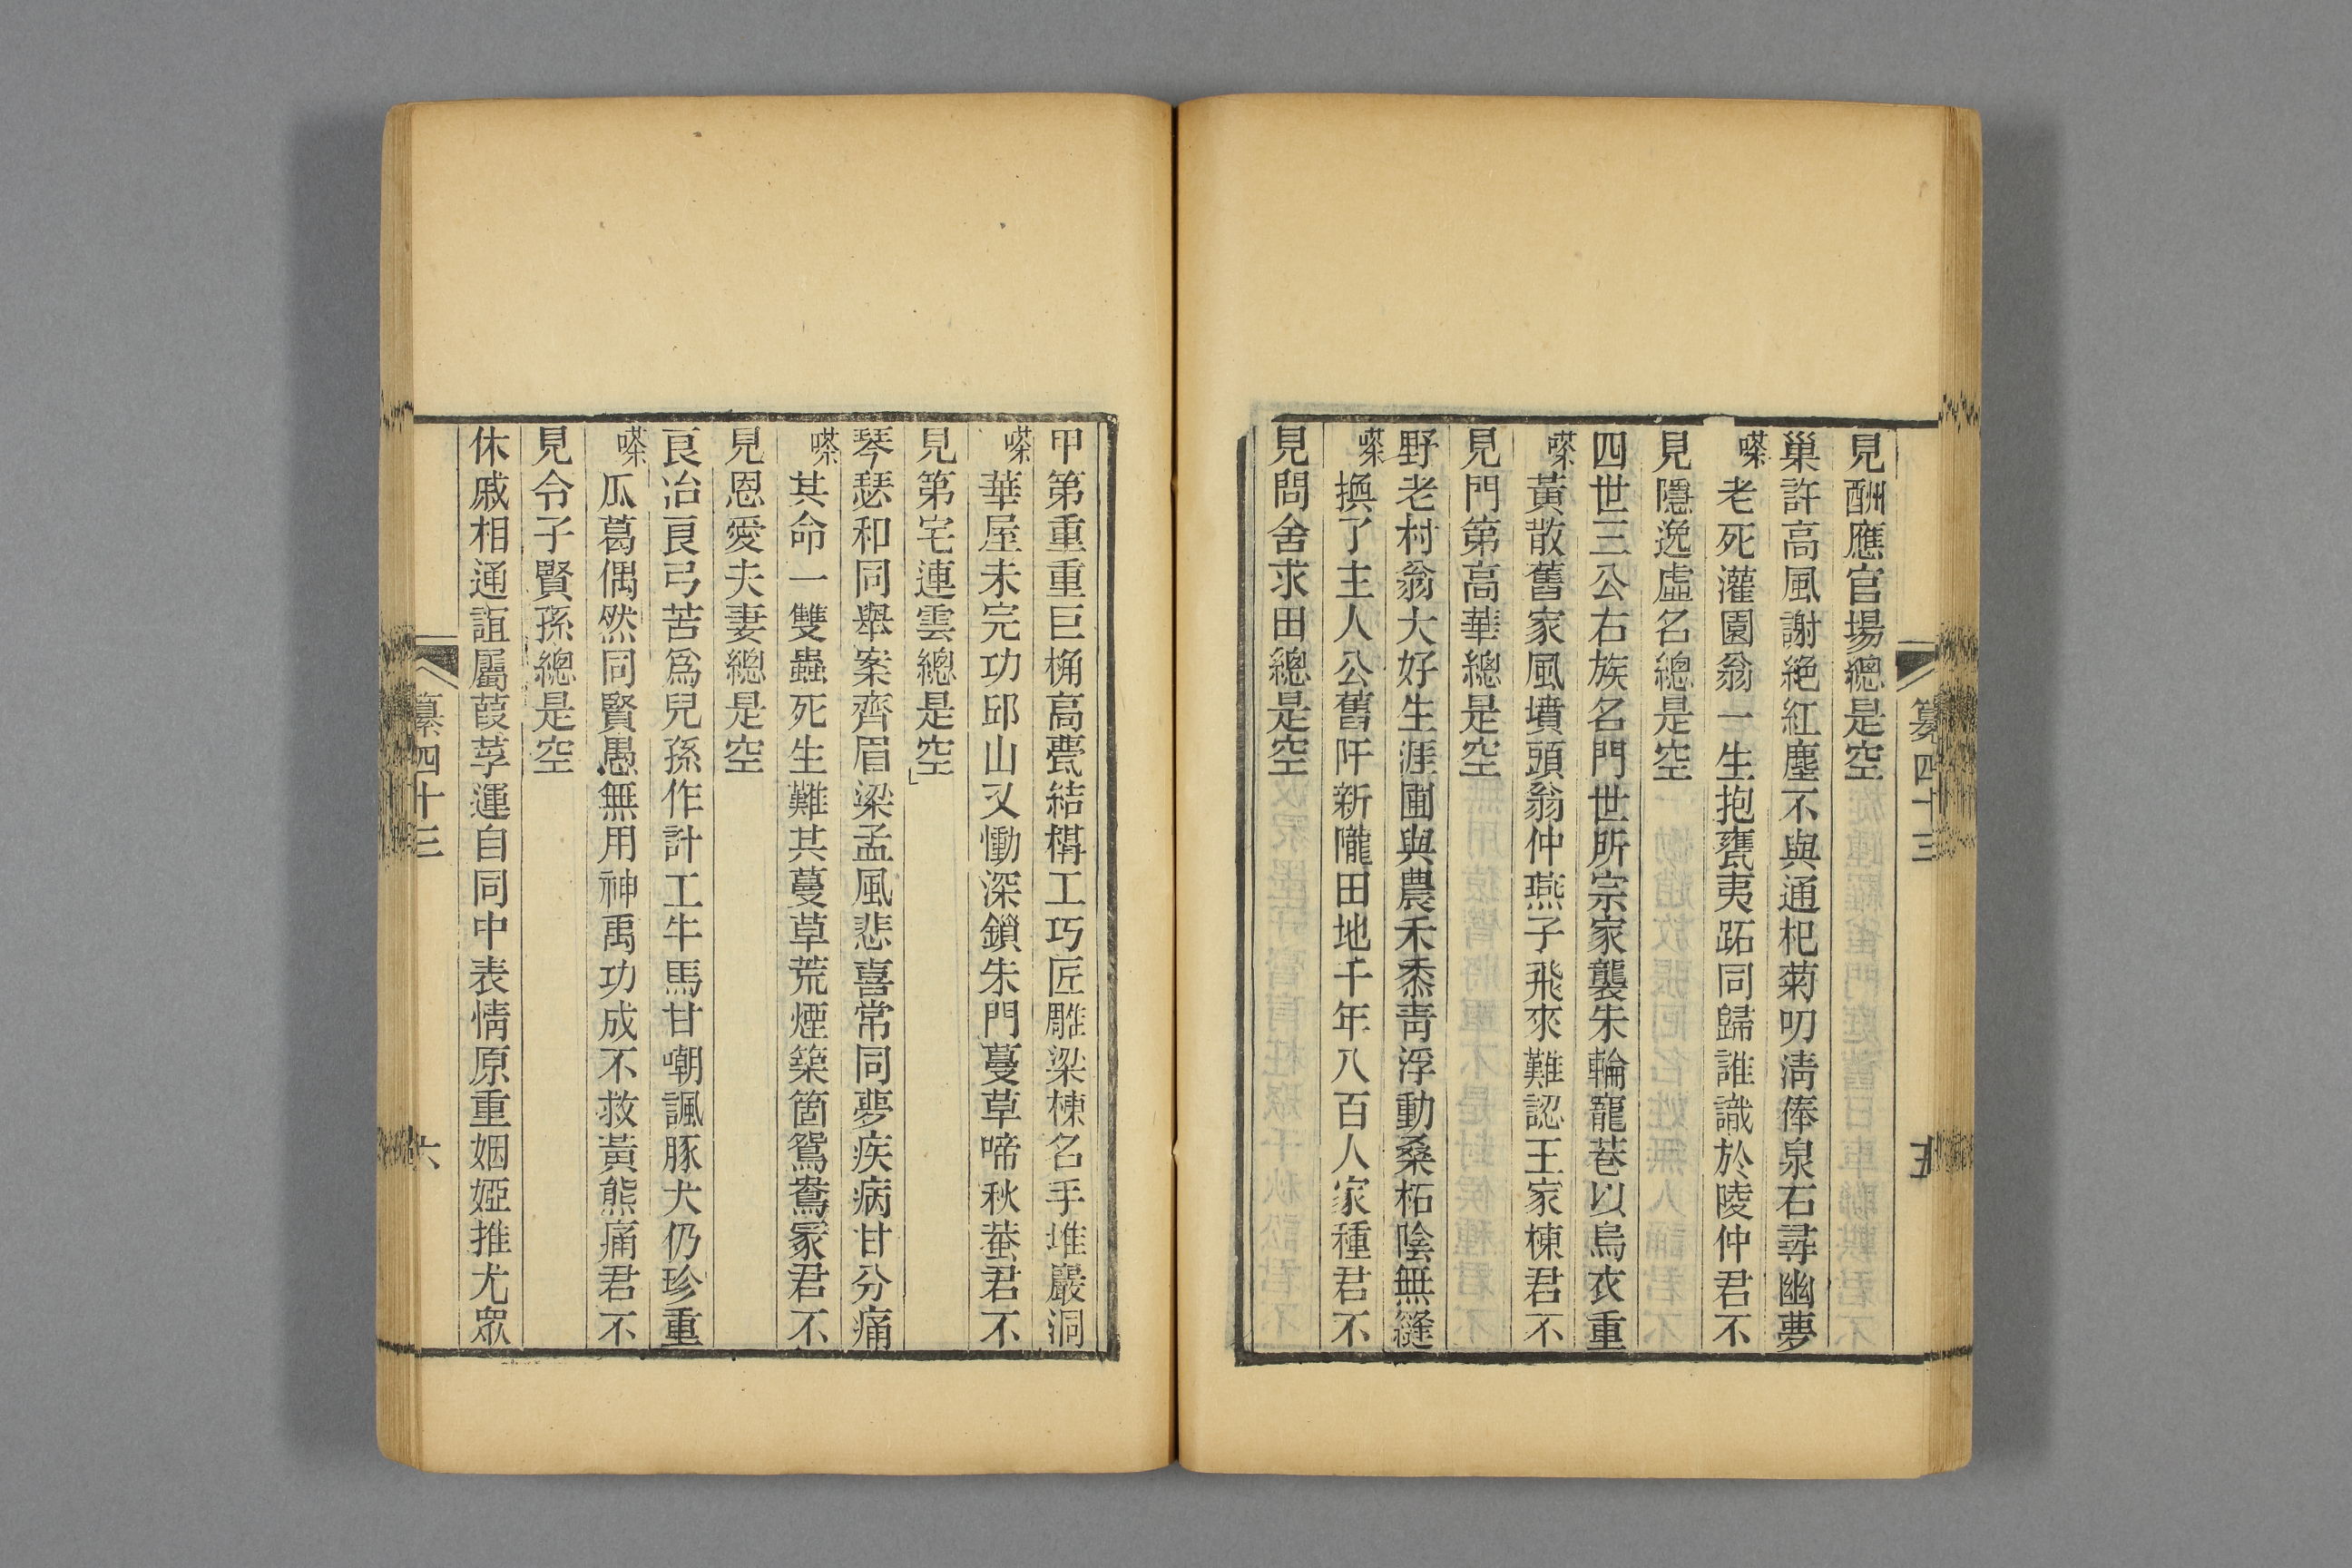 纂四十三
五
見酬應官場總是空
巢許高風謝絶紅塵不與通杞菊叨淸俸泉石尋幽夢
嗏老死灌園翁一生抱甕夷跖同歸誰識於陵仲君不
見隱逸虛名總是空
四世三公右族名門世所宗家襲朱輪寵巷以烏衣重
嗏黃散舊家風墳頭翁仲燕子飛來難認王家棟君不
見門第高華總是空
野老村翁大好生涯圃與農禾黍靑浮動桑柘陰無縫
嗏換了主人公舊阡新隴田地千年八百人家種君不
見問舍求田總是空
甲第重重巨桷高甍結構工巧匠雕梁棟名手堆巖洞
嗏華屋未完功邱山又慟深鎖朱門蔓草啼秋蛬君不
見第宅連雲總是空
琴瑟和同舉案齊眉梁孟風悲喜常同夢疾病甘分痛
嗏其命一雙蟲死生難其蔓草荒煙築箇鴛鴦冢君不
見恩愛夫妻總是空
良冶良弓苦爲兒孫作計工牛馬甘嘲諷豚犬仍珍重
嗏瓜葛偶然同賢愚無用神禹功成不救黃熊痛君不
見令子賢孫總是空
休戚相通誼屬葭莩運自同中表情原重姻婭推尤眾
纂四十三
六